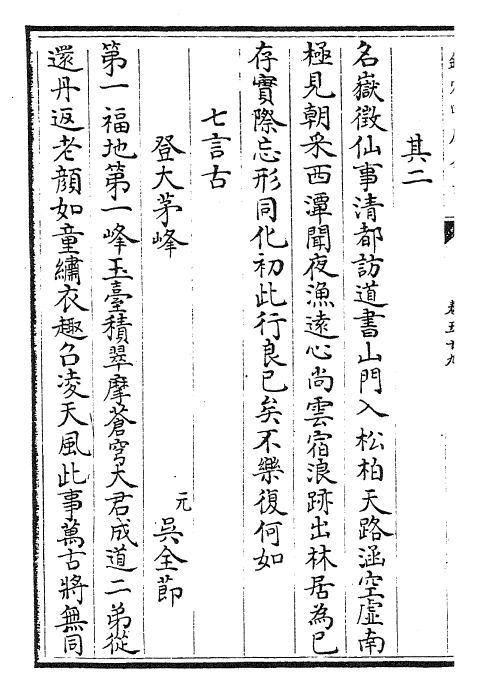 其二
名嶽徵仙事清都訪道書山門入松柏天路涵空虛南
極見朝采西潭聞夜漁遠心尚雲宿浪跡出林居為已
存實際忘形同化初此行良已矣不樂復何如
七言古
登大茅峰
元 吳全節
第一福地第一峰玉臺積翠摩蒼穹大君成道二弟從
還丹返老顔如童繡衣趣召凌天風此事萬古將無同
卷五十九